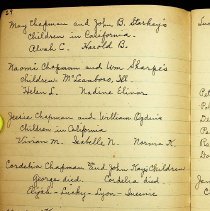 59
May Chapman and John B. Starkey's
children in California.
Alvah C. Harold B.
Naomi Chapman and Wm Sharpe's
children McLeansboro, Ill.
Helen L. Nadine Elinor
Jessie Chapman and William Ogdin's
Children in California
Vivian M. Isabelle N. Norma K.
Cordelia Chapman and John Kay Children
George died. Cordelia died
Lyon - Susanna